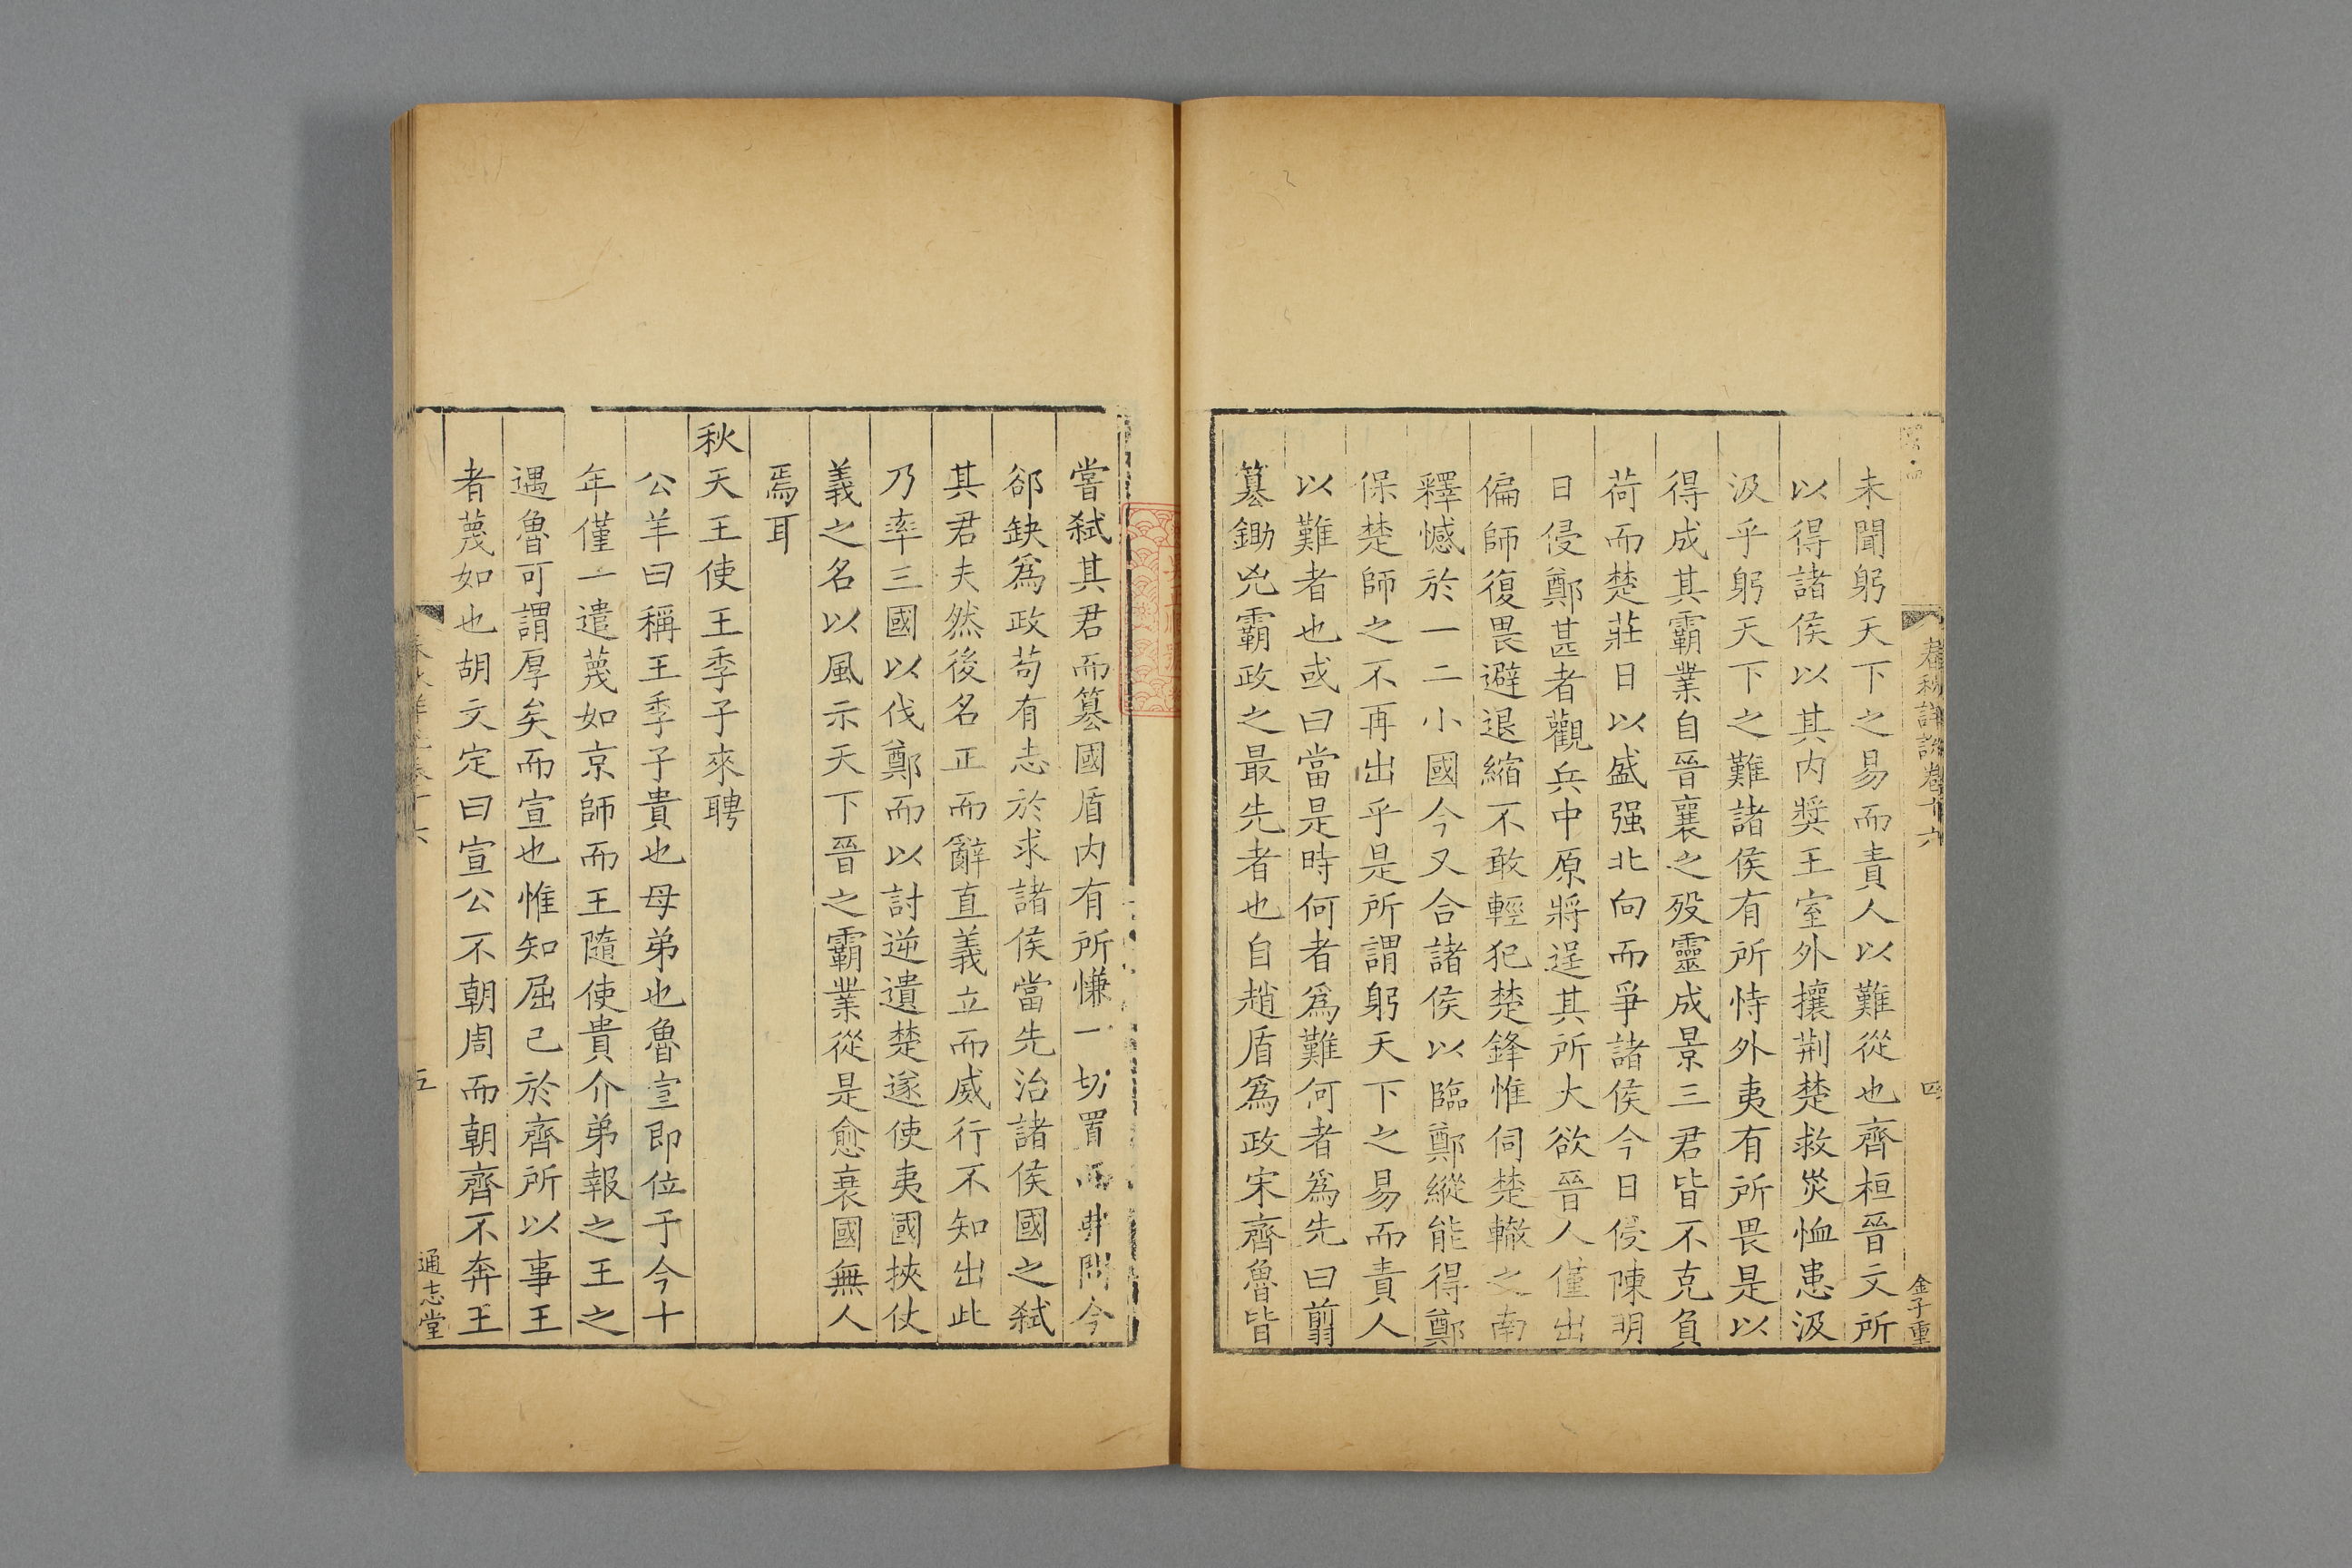 春秋詳說卷十六
四
金子重
未聞躬天下之易而責人以難從也齊桓晉文所
以得諸侯以其内奬王室外攘荆楚救災恤患汲
汲乎躬天下之難諸侯有所恃外夷有所畏是以
得成其霸業自晉襄之殁靈成景三君皆不克負
荷而楚莊日以盛强北向而爭諸侯今日侵陳明
日侵鄭甚者觀兵中原將逞其所大欲晉人僅出
偏師復畏避退縮不敢輕犯楚鋒惟伺楚轍之南
釋憾於一二小國今又合諸侯以臨鄭縱能得鄭
保楚師之不再出乎是所謂躬天下之易而責人
以難者也或曰當是時何者爲難何者爲先曰翦
簒鋤兇霸政之最先者也自趙盾爲政宋齊魯皆
嘗弑其君而簒國盾内有所慊一切置而弗問今
郤缺爲政苟有志於求諸侯當先治諸侯國之弑
其君夫然後名正而辭直義立而威行不知出此
乃率三國以伐鄭而以討逆遺楚遂使夷國挾仗
義之名以風示天下晉之霸業從是愈衰國無人
焉耳
秋天王使王季子來聘
公羊曰稱王季子貴也母弟也魯宣即位于今十
年僅一遣蔑如京師而王隨使貴介弟報之王之
遇魯可謂厚矣而宣也惟知屈己於齊所以事王
者蔑如也胡文定曰宣公不朝周而朝齊不奔王
春秋詳說卷十六
五
通志堂